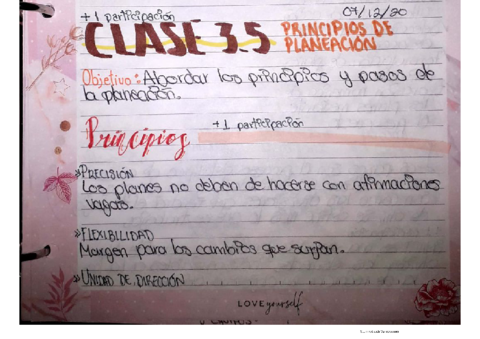 +1 participación
07/12/20
CLASE 3.5 PRINCIPIOS DE
PLANEACIÓN
Objetivo: Abordar los principios y pasos de
la planeación.
Principios
+1 participación
»PRECISIÓN
Los planes no deben de hacerse con afirmaciones
vagas.
»FLEXIBILIDAD
Margen para los cambios que surjan.
»UNIDAD DE DIRECCIÓN
LOVE yourself